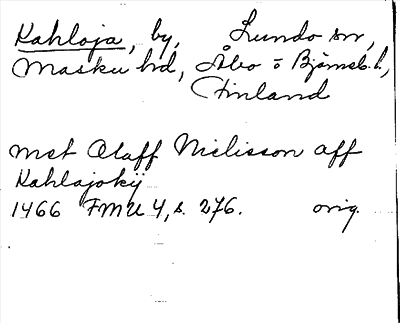 Kahloja, by, Lundo sn,
Masku hd, Åbo o Björneb. l.,
Finland
mst Olaff Nielisson aff
Kahlajokij
1466 FMU 4, s. 276. orig.